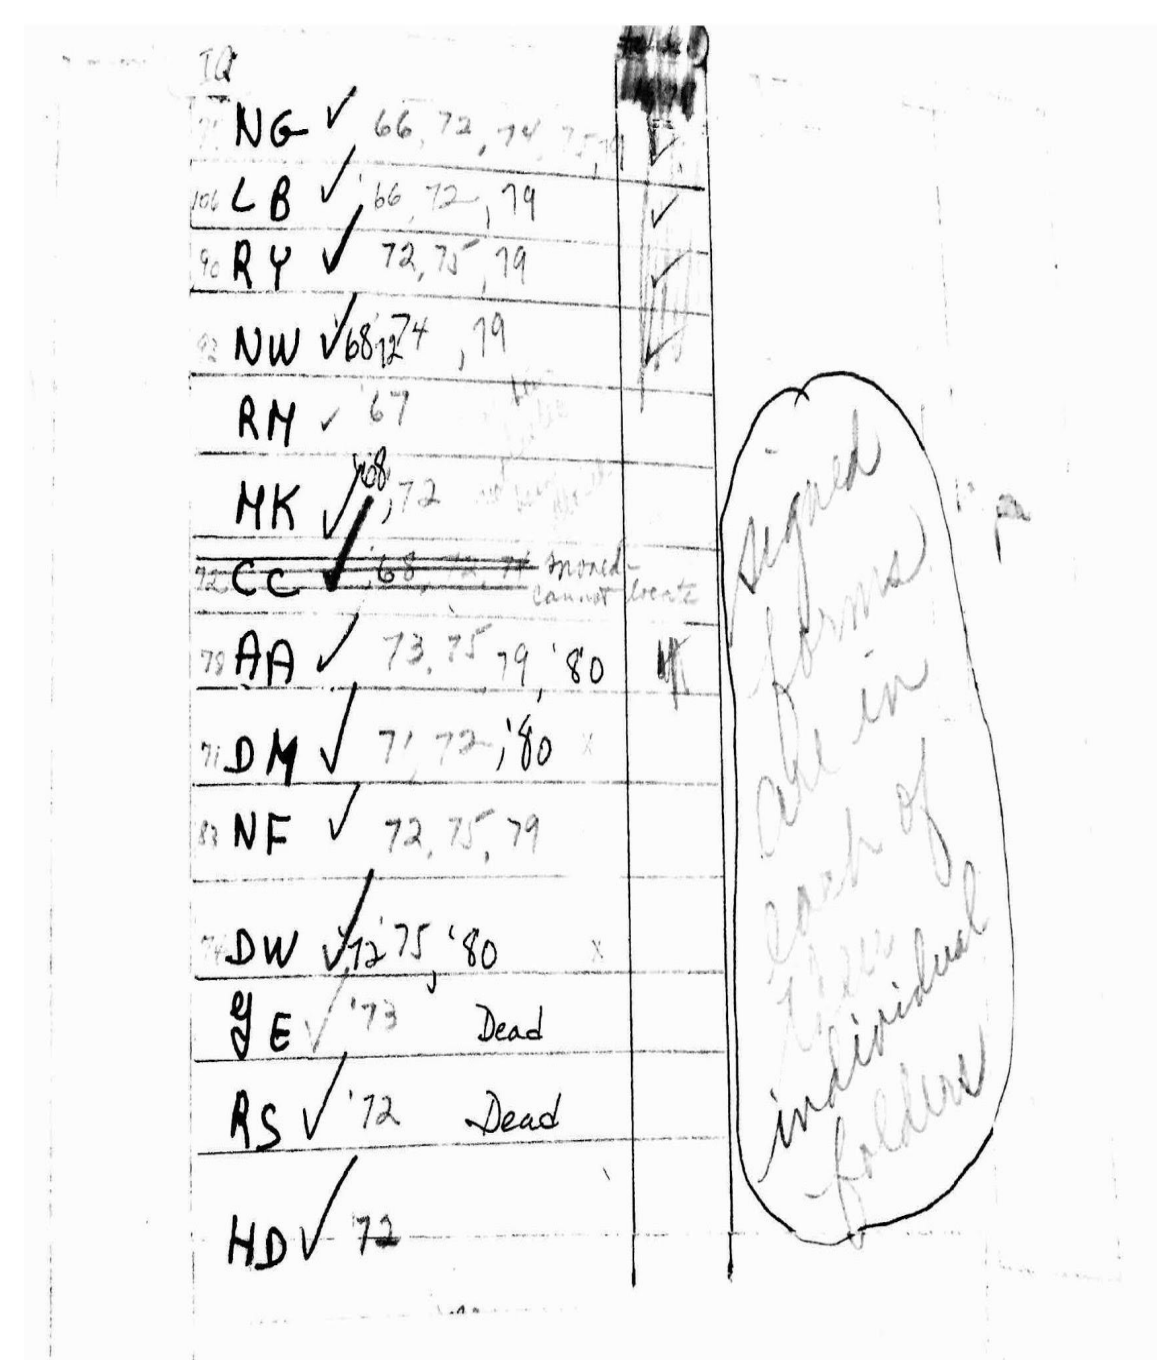 IQ
NG ✓ 66, 72, 74, 75, 79 ✓
106 LB ✓ '66, 72, 79 ✓
90 RY ✓ 72, 75, 79 ✓
92 NW ✓ '68, 72 '74, 79 ✓
RM ✓ '67
MK ✓ '68, 72
72 CC ✓ '68, 72, 74 moved-
cannot locate
78 AA ✓ 73, 75, 79, '80
71 DM ✓ 71, 72, '80 x
83 NF ✓ 72, 75, 79
74 DW ✓ '72 '75, '80 x
YE ✓ '73 Dead
RS ✓ '72 Dead
HD ✓ '72
signed
forms
are in
each of
their
individual
folders